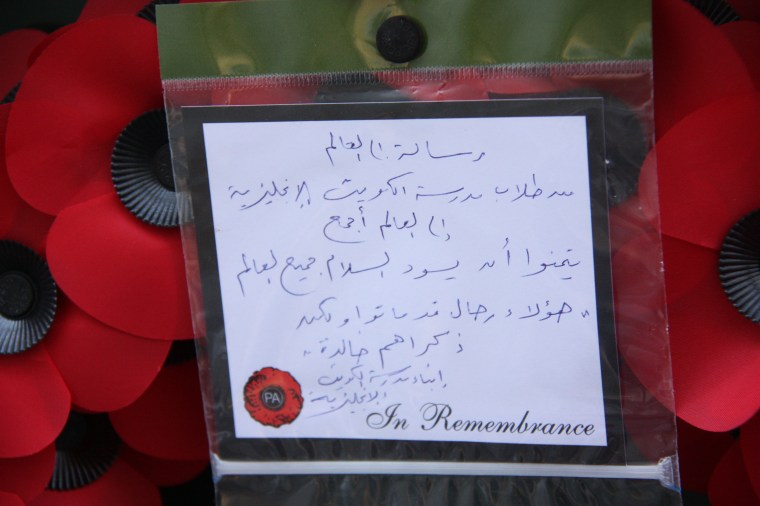 رسالة إلى العالم
من طلاب مدرسة الكويت الإنجليزية
إلى العالم أجمع
يتمنوا أن يسود السلام جميع العالم
" هؤلاء رجال قد ماتوا ولكن
ذكراهم خالدة "
أبناء مدرسة الكويت
الإنجليزية
PA
In Remembrance